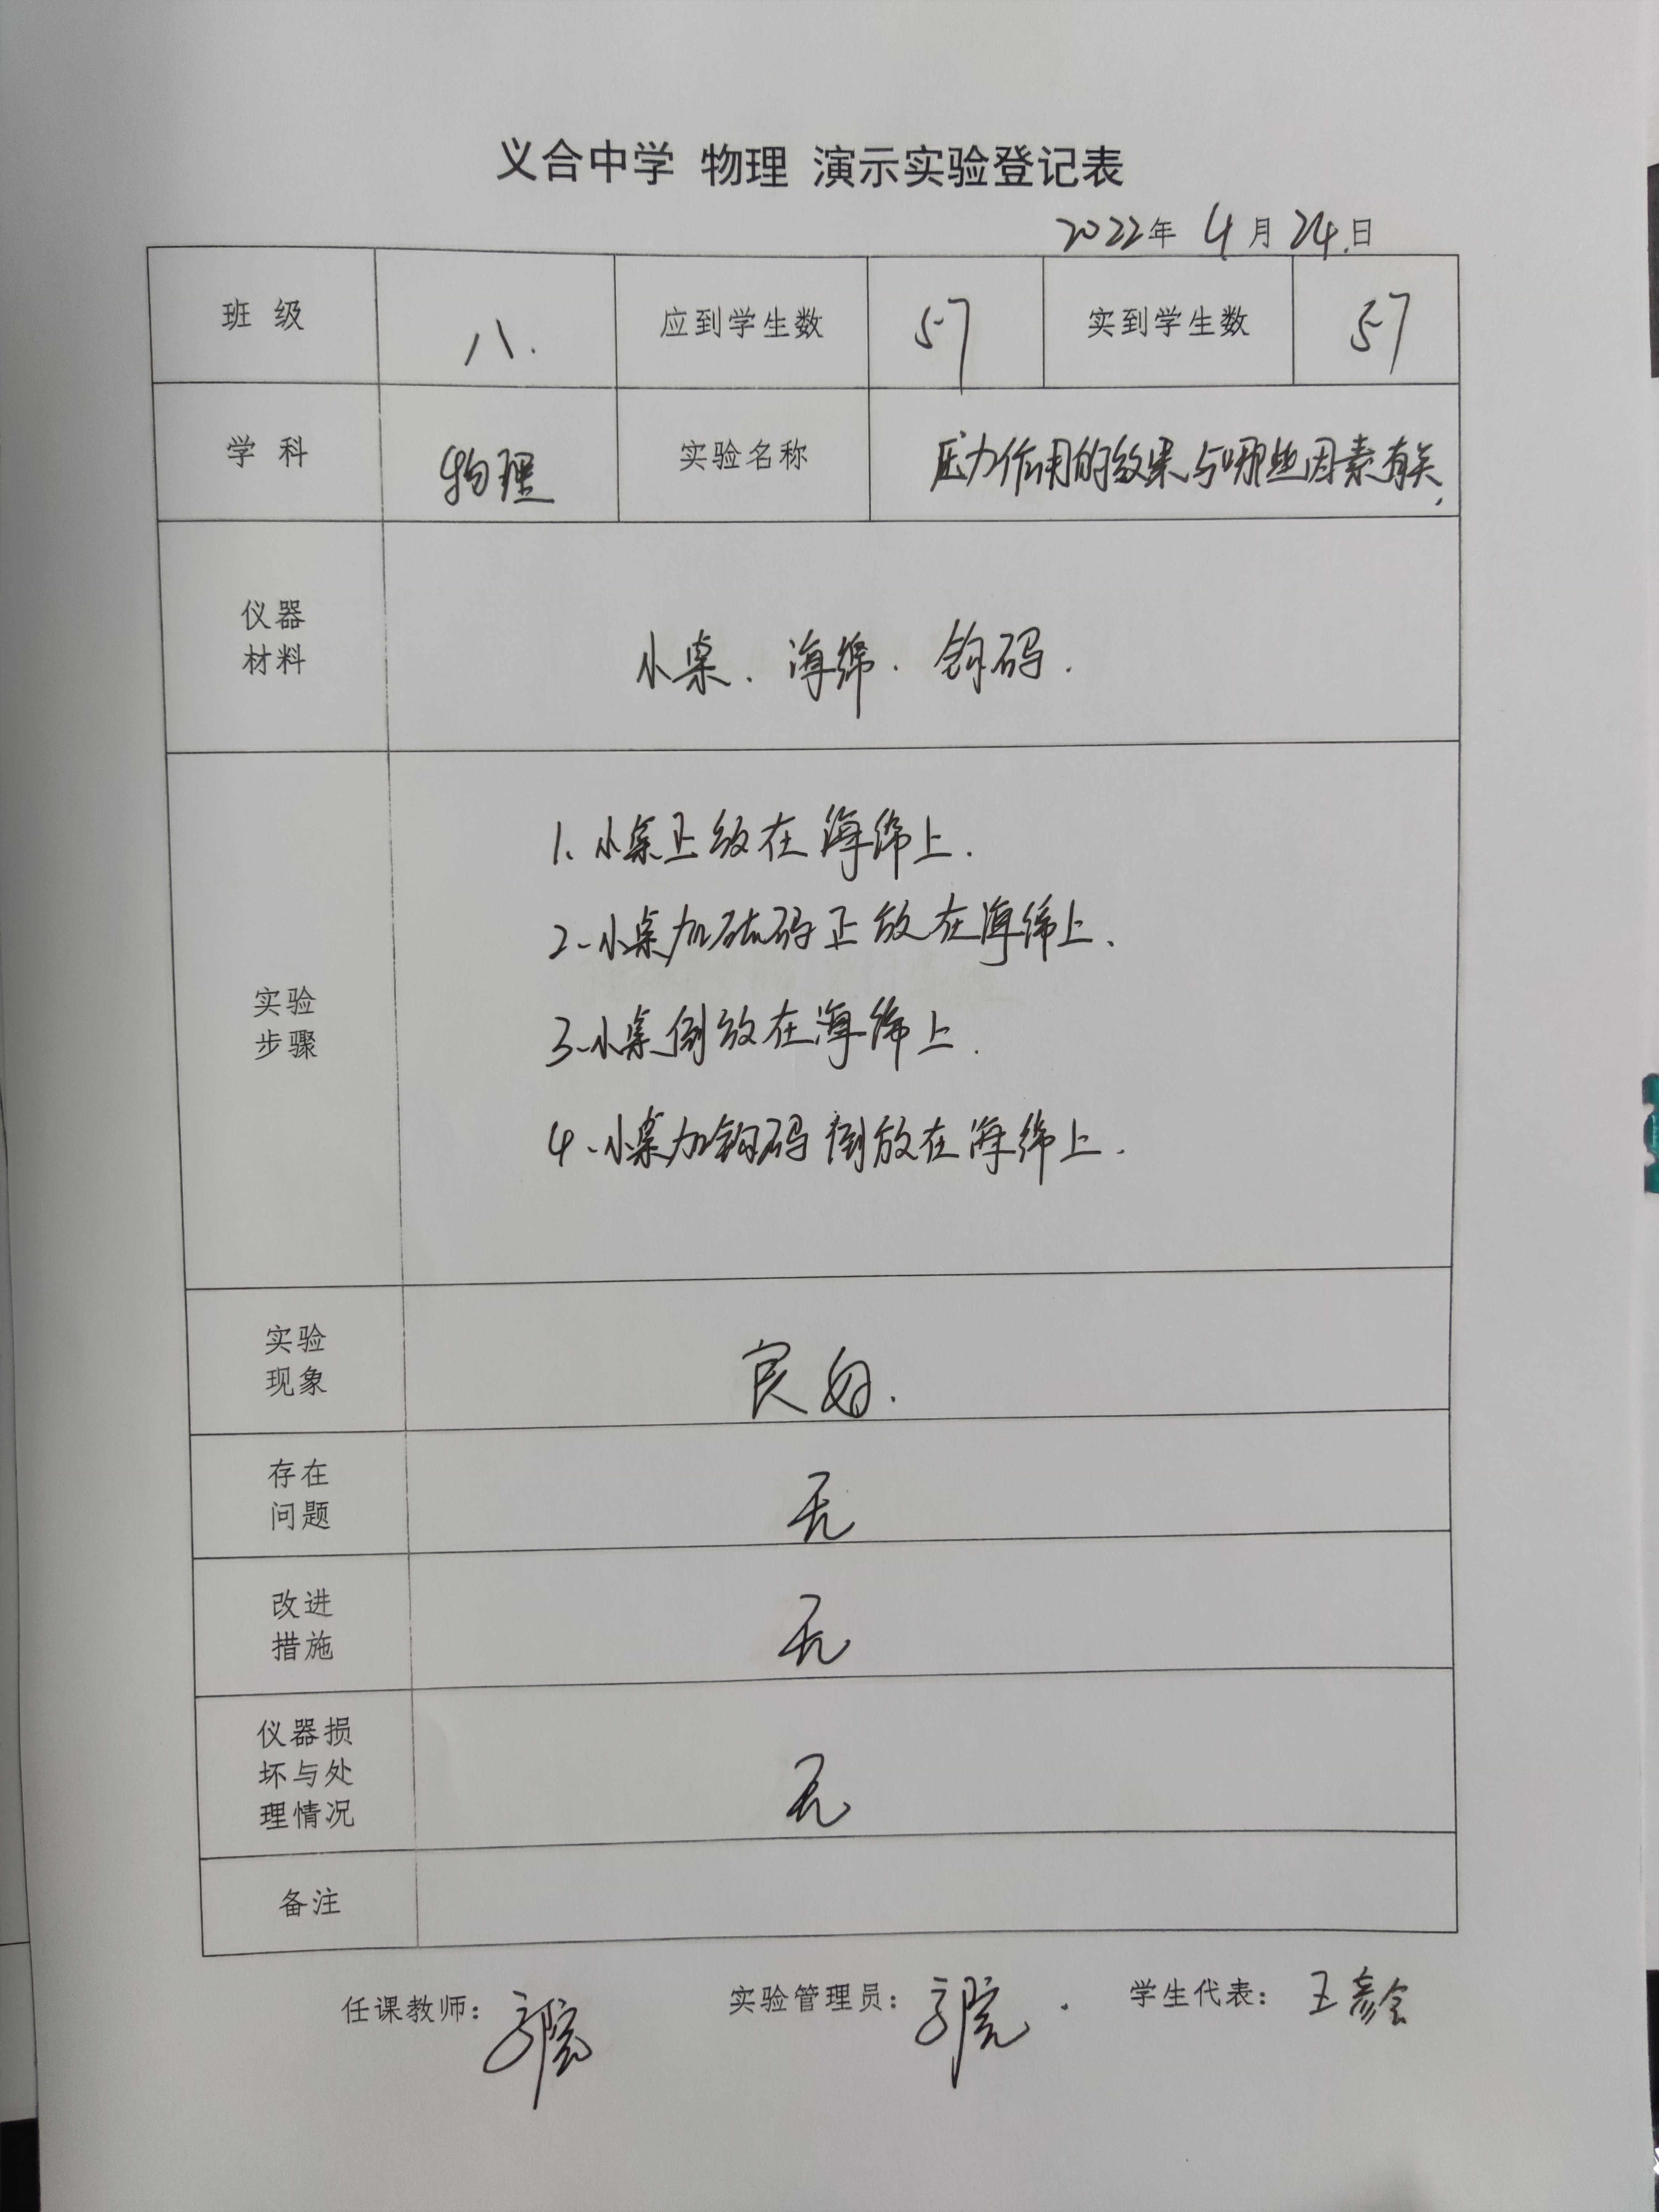 义合中学 物理 演示实验登记表
2022年 4月 24日
班 级 八. 应到学生数 57 实到学生数 57
学 科 物理 实验名称 压力作用的效果与哪些因素有关
仪器
材料
小桌、海绵、钩码.
实验
步骤
1、小桌正放在海绵上.
2、小桌加砝码正放在海绵上、
3、小桌倒放在海绵上.
4、小桌加钩码倒放在海绵上.
实验
现象
良好.
存在
问题
无
改进
措施
无
仪器损
坏与处
理情况
无
备注
任课教师：
实验管理员：
学生代表： 王彦会